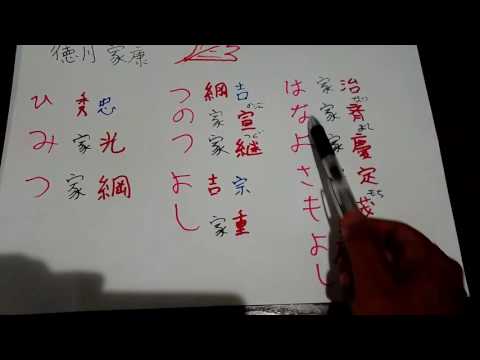 徳川 家康
ひ 秀忠
み 家光
つ 家綱
つ 綱吉
のぶ
の 家宣
つぐ
つ 家継
よ 吉宗
し 家重
は 家治
な 家斉
よし
よ 家慶
さ 定
もち
も 茂
よ
し